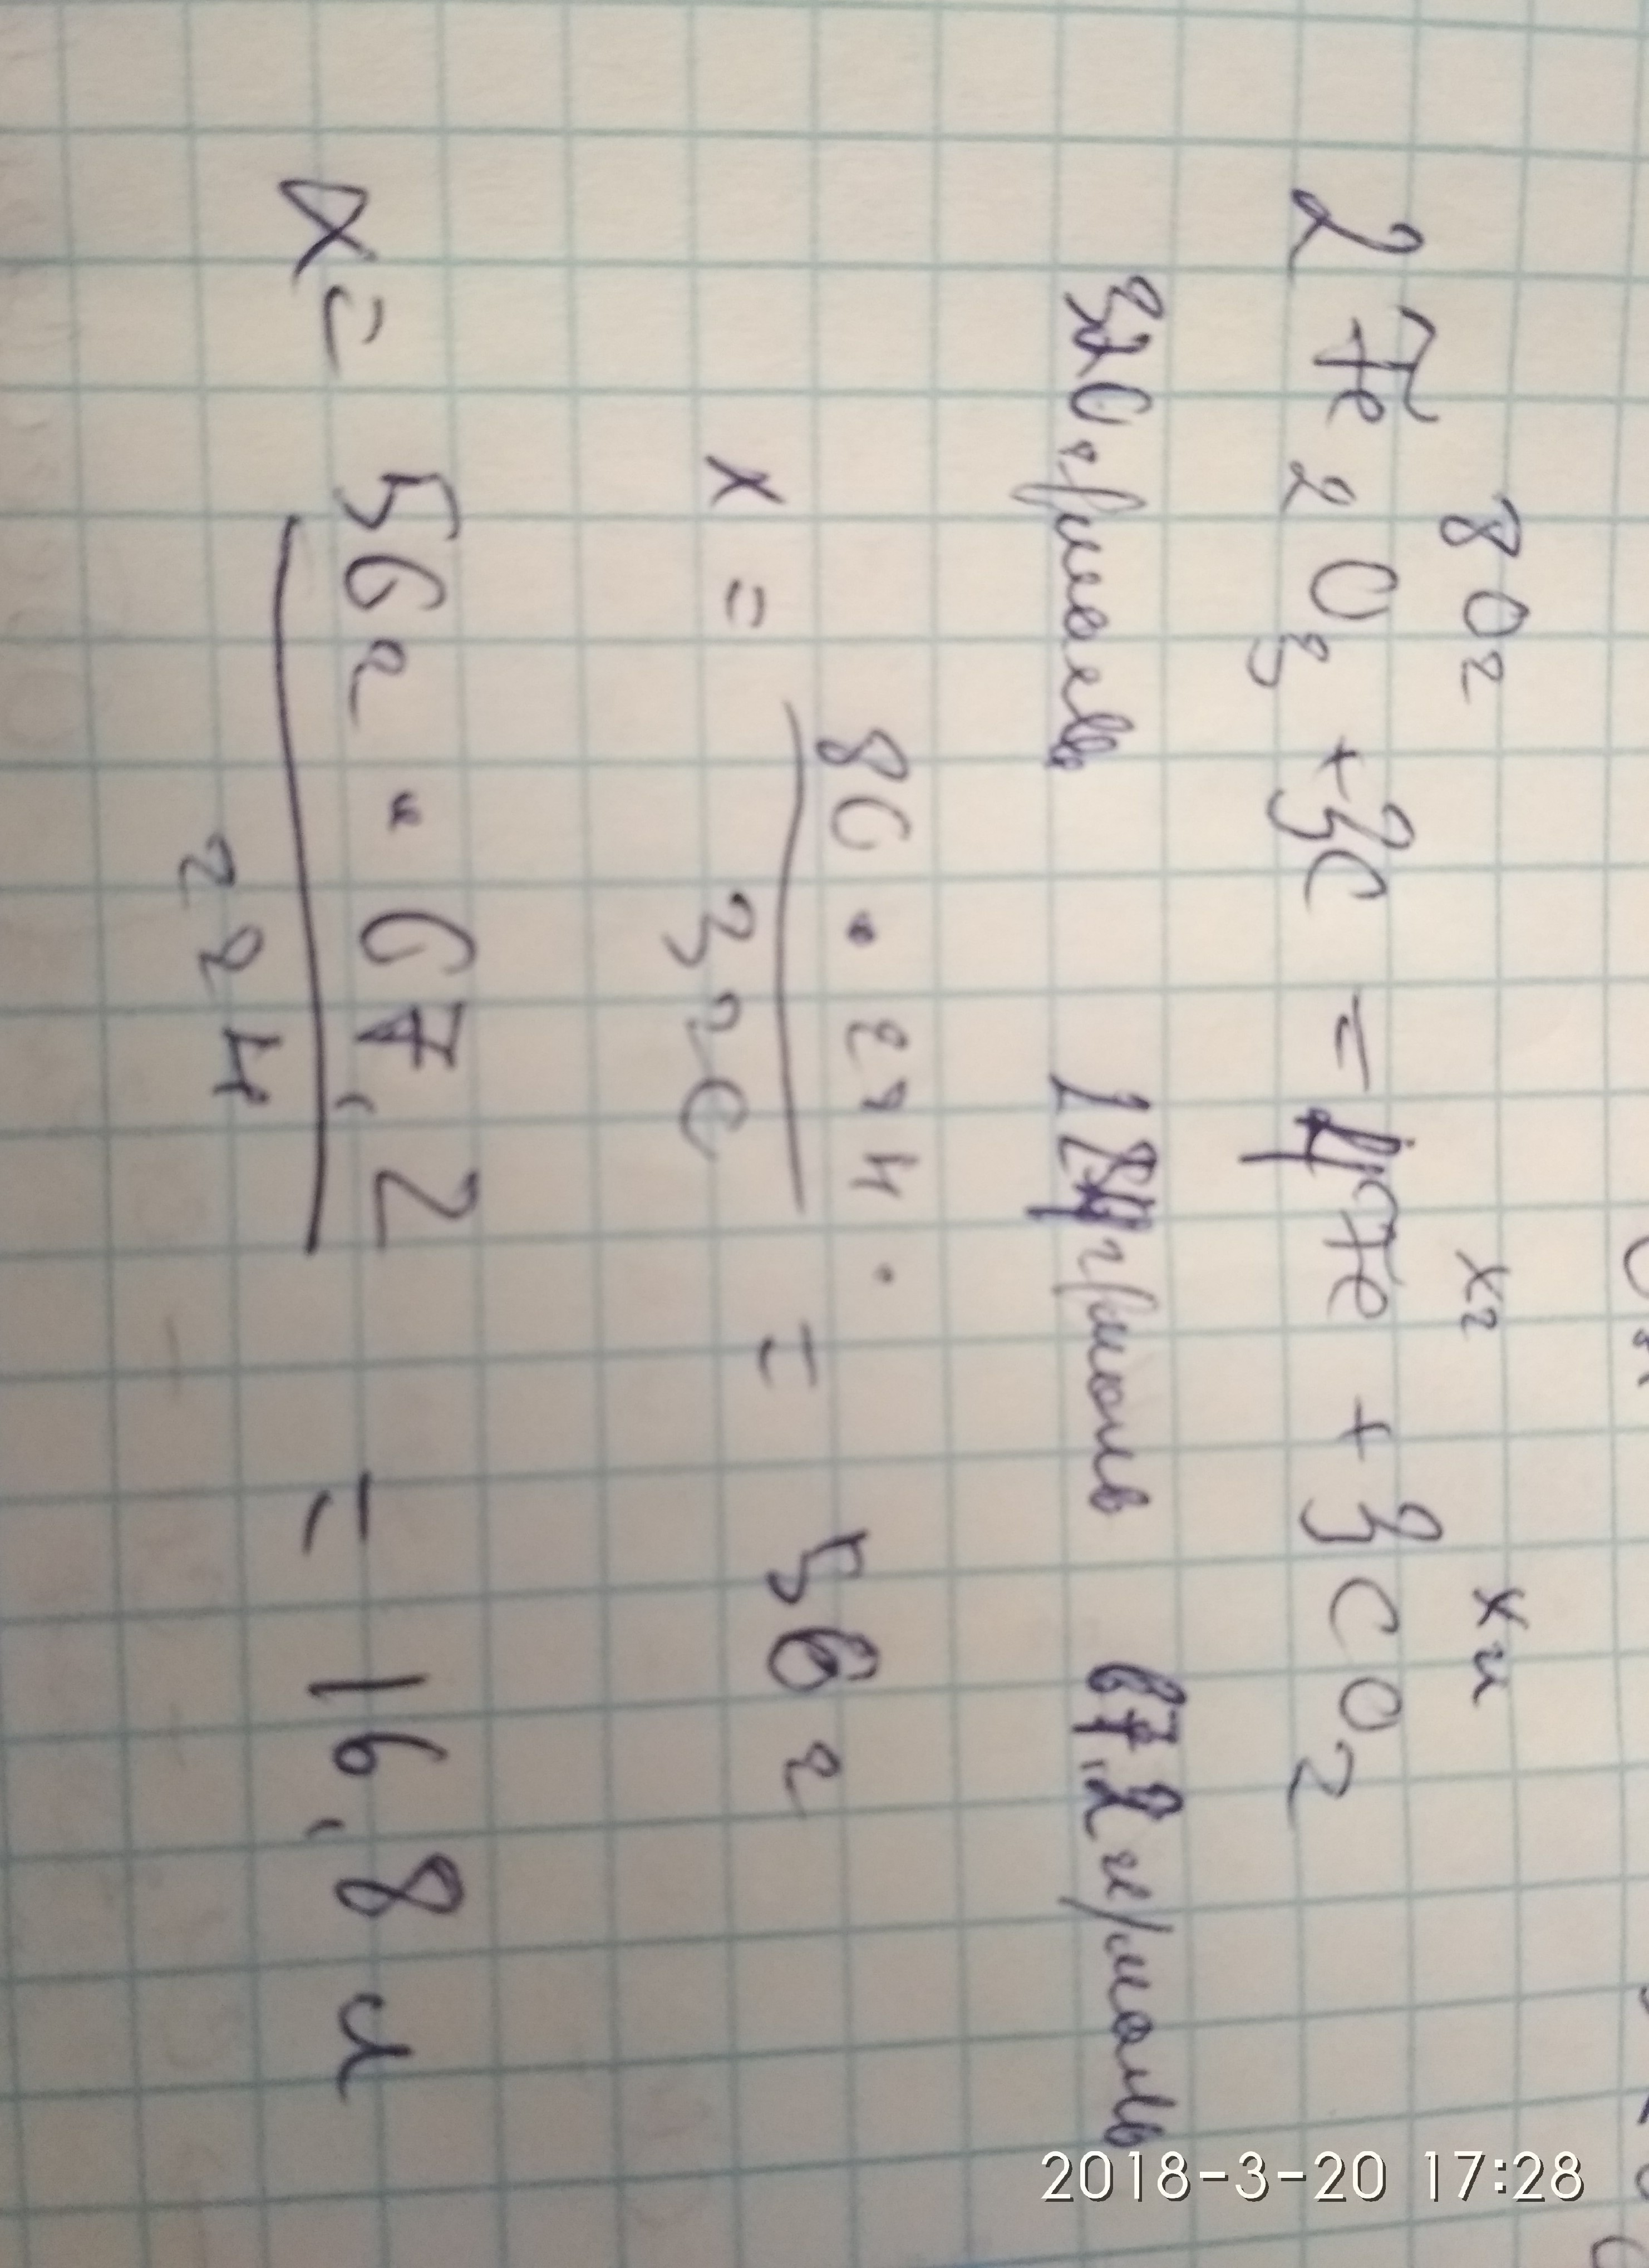 80г хг хл
2Fe2O3 + 3C = 4Fe + 3CO2
320 г/моль 224 г/моль 67,2 л/моль
x = 80 · 224 / 320 = 56 г
x = 56г · 67,2 / 224 = 16,8 л
2018-3-20 17:28